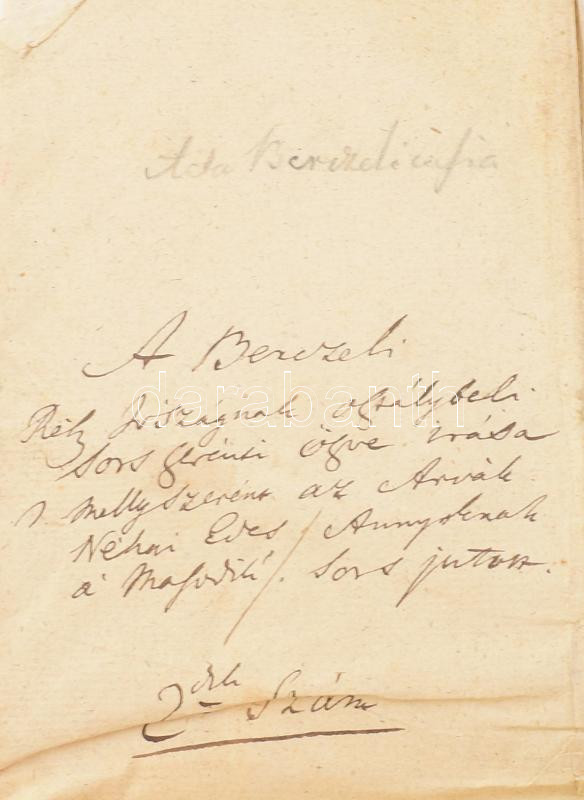 Acta Berczelicasia
A Berczeli
Rész Jószágnak osztálybeli
Sors szerénti írása
mellyszerént az Árvák
Néhai Edes Annyoknak
a Masodik Sors jutott.
2dik Szám
darabanth